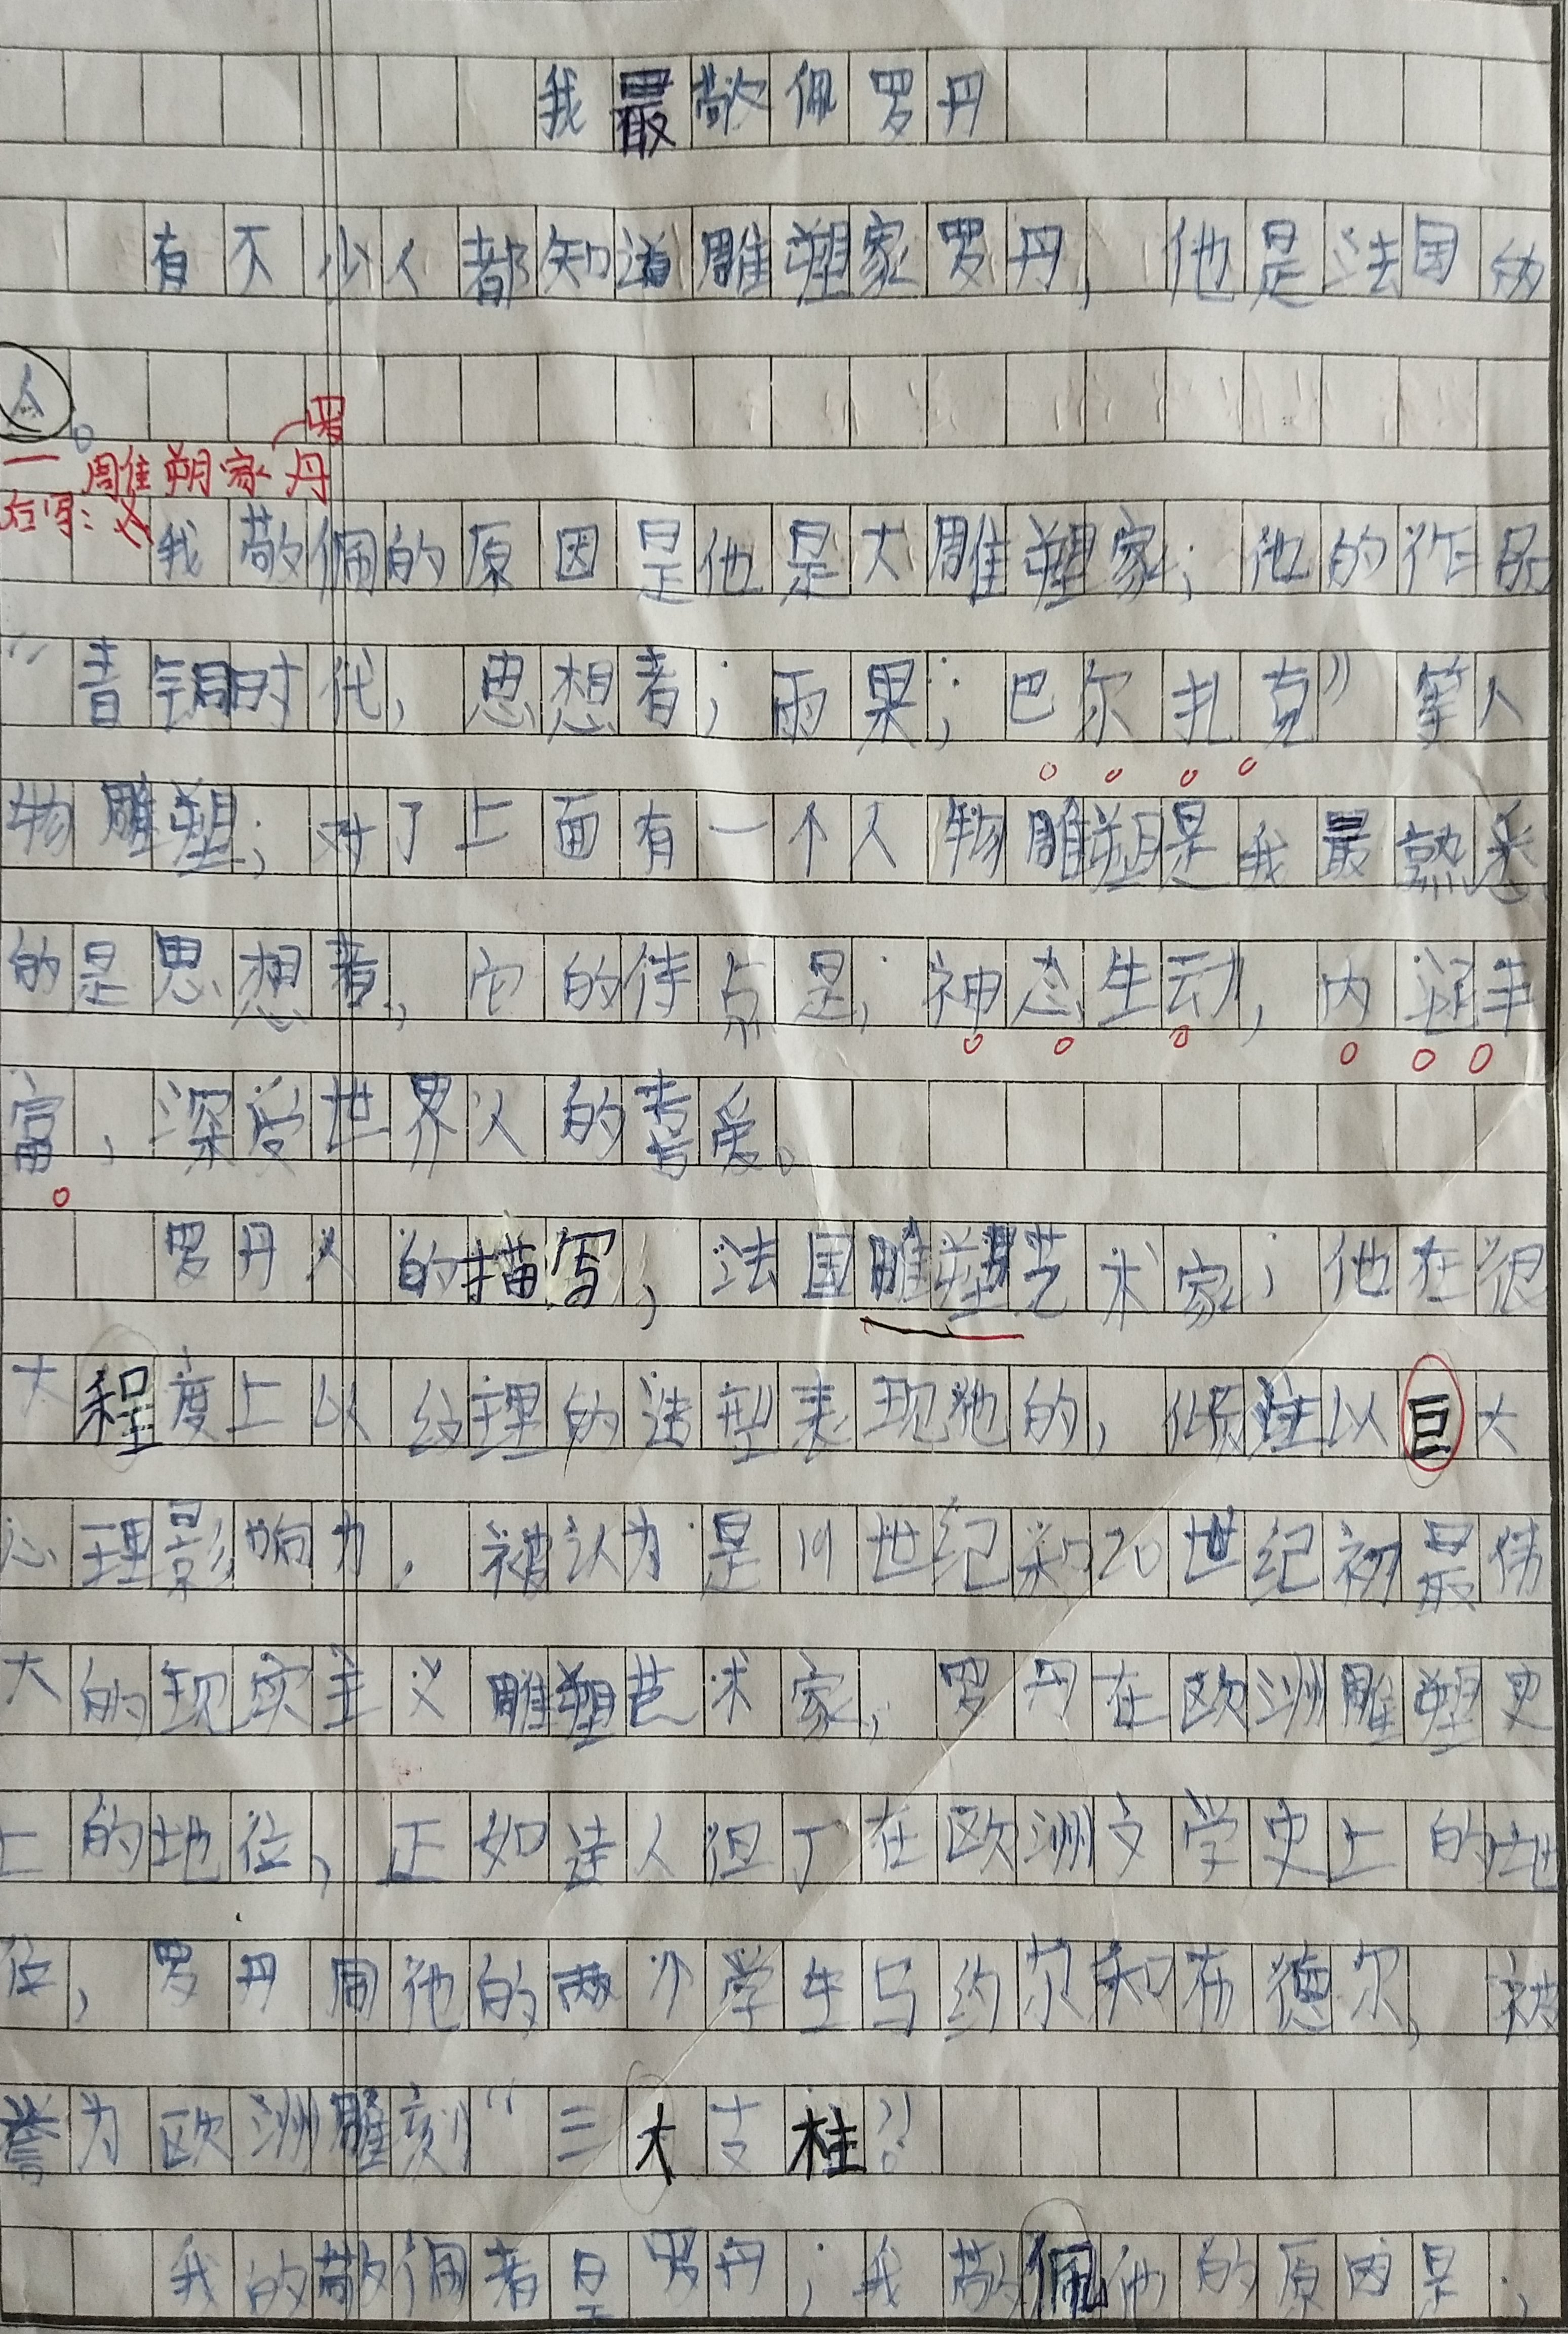 我最敬佩罗丹
有不少人都知道雕塑家罗丹，他是法国的
人。
罗
一 雕塑家 丹
我敬佩的原因是他是大雕塑家；他的作品
“青铜时代，思想者；雨果；巴尔扎克”等人
物雕塑；对了上面有一个人物雕塑是我最熟悉
的是思想者，它的特点是；神态生动，内涵丰
富，深受世界人的喜爱。
罗丹人的描写，法国雕塑艺术家；他在很
大程度上以纹理的造型表现他的，倾注以巨大
心理影响力．被认为是19世纪和20世纪初最伟
大的现实主义雕塑艺术家，罗丹在欧洲雕塑史
上的地位，正如诗人但丁在欧洲文学史上的地
位，罗丹同他的两个学生马约尔和布德尔，被
誉为欧洲雕刻“三大支柱”。
我的敬佩者是罗丹；我敬佩他的原因是；